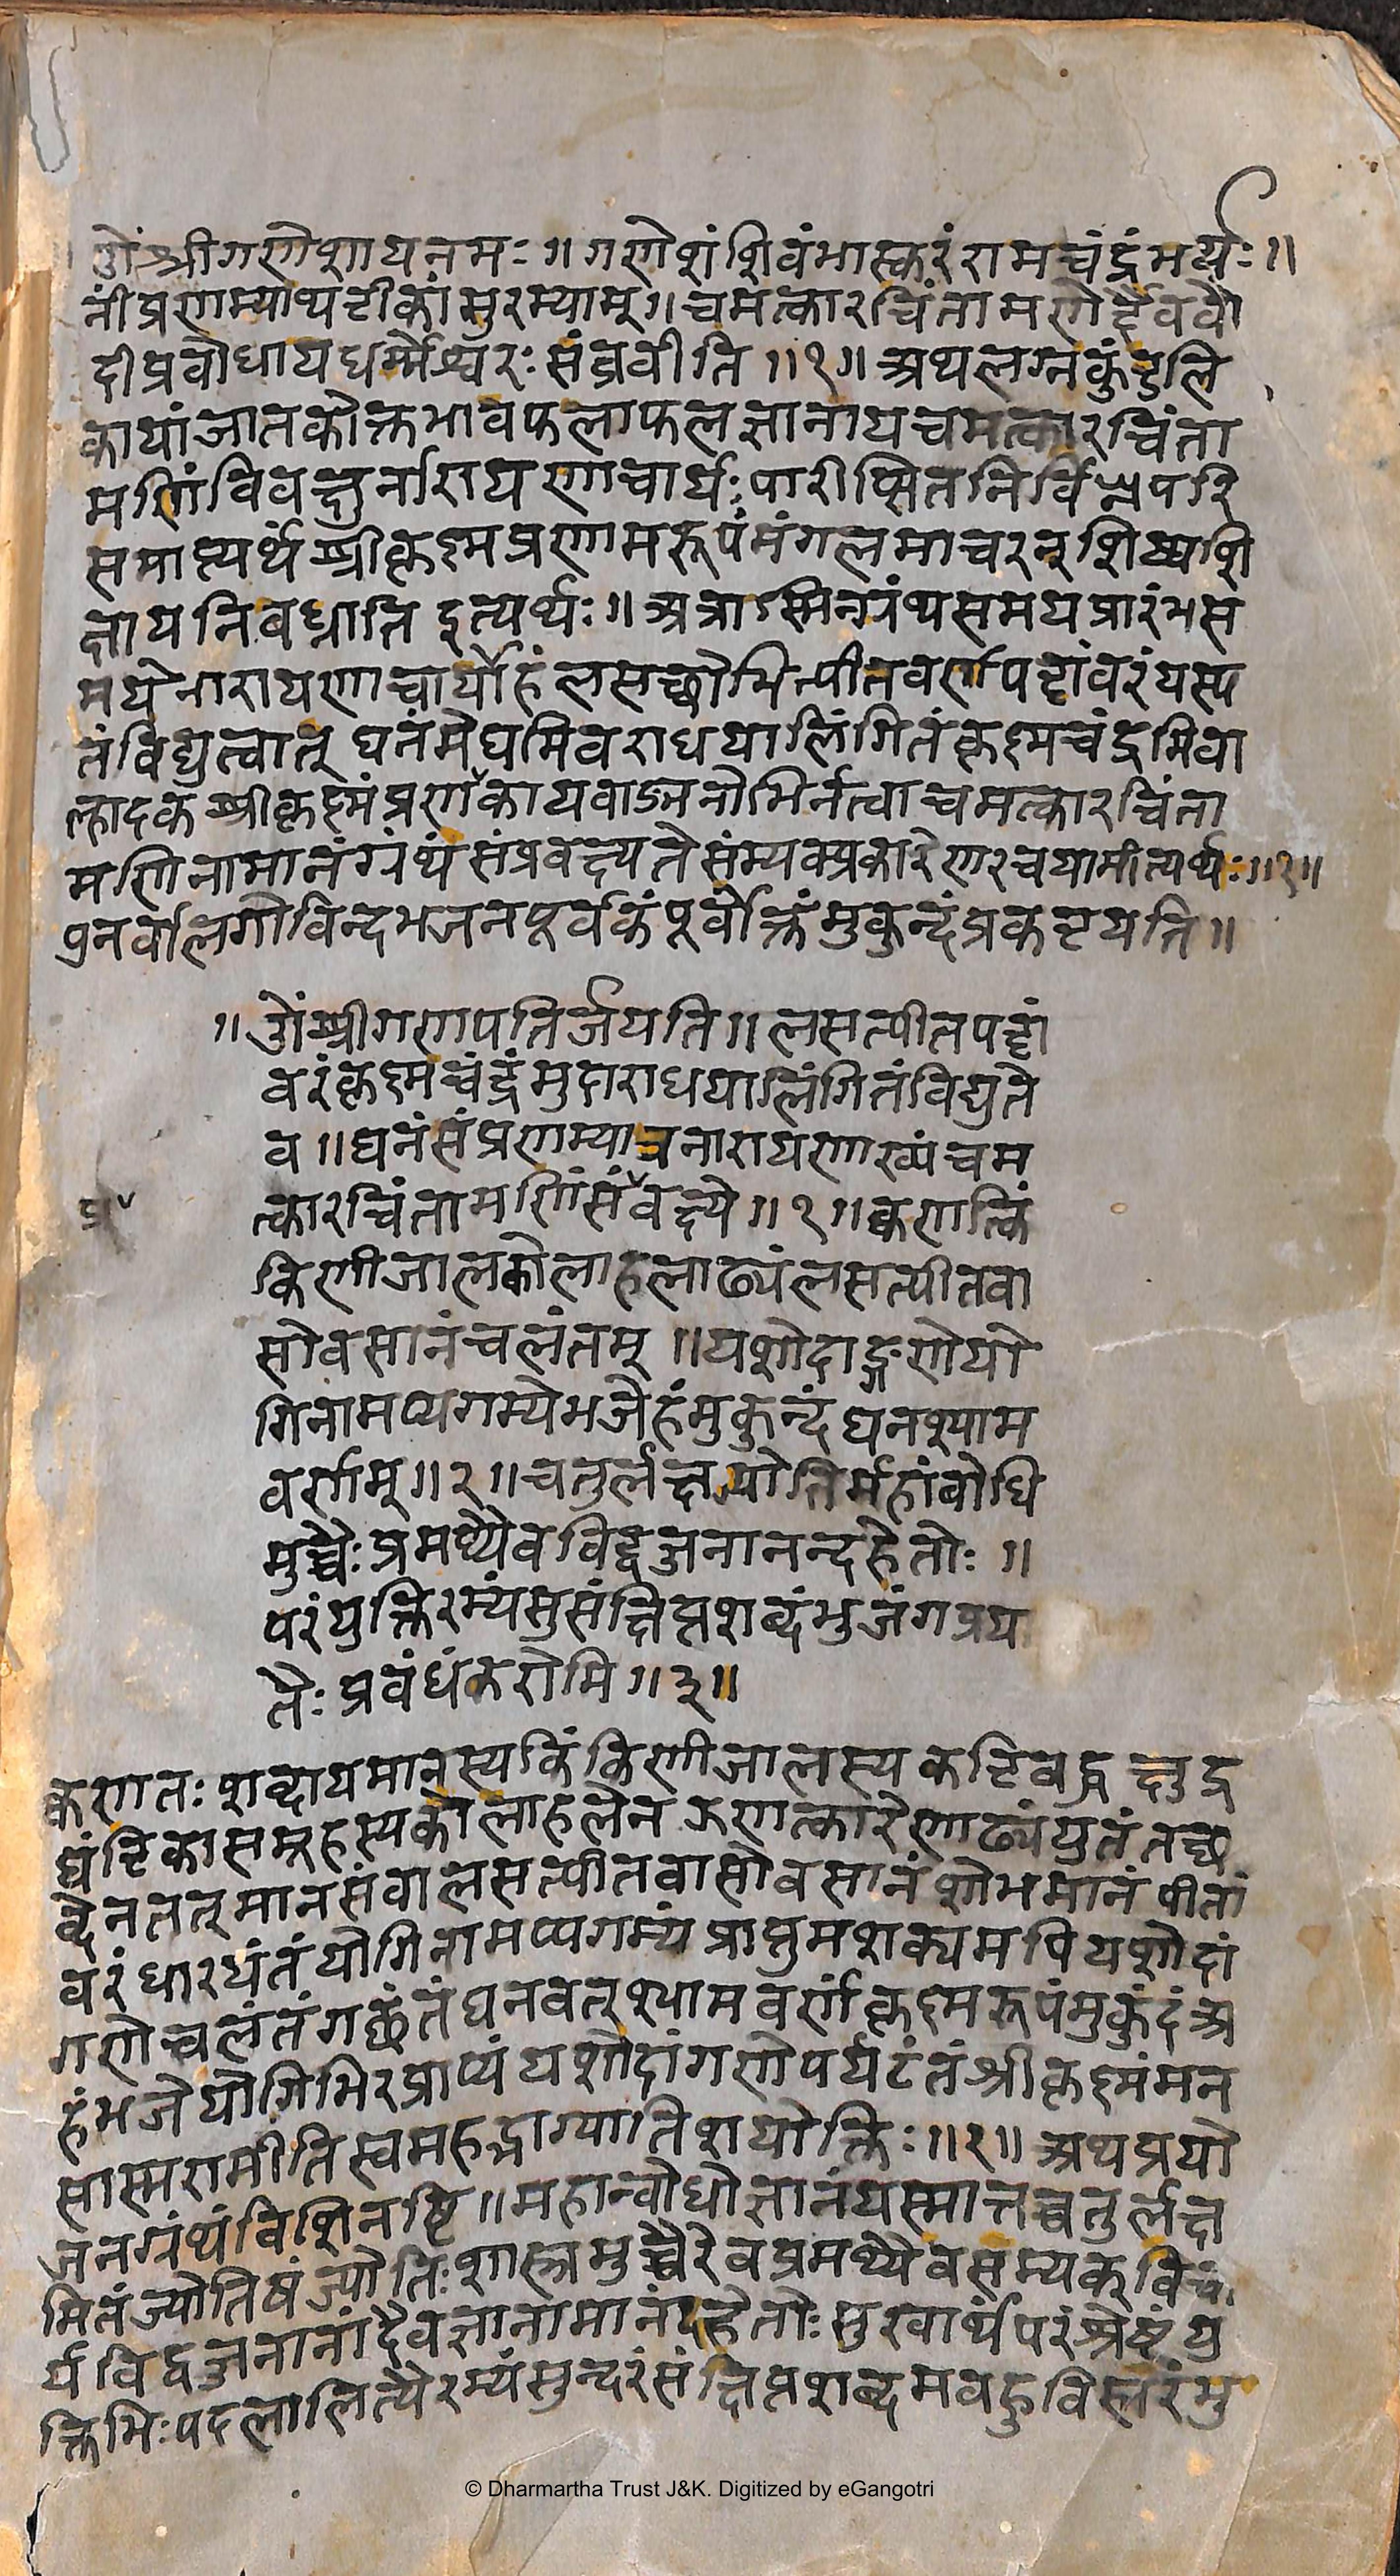 ॐश्रीगणेशायनमः॥गणेशंशिवंभास्करंरामचंद्रंमर्य॥
नींप्रणम्याथटीकांसुरम्याम्॥चमत्कारचिंतामणेर्द्दैववे
दीप्रवोधायधर्म्मेश्वरःसंब्रवीति॥१॥अथलग्नकुंडलि
कायांजातकोक्तभावफलाफलज्ञानायचमत्कारचिंता
मणिंविवक्षुर्नारायणाचार्यःपारीप्सितनिर्विघ्नपरि
समाप्त्यर्थंश्रीकृष्णप्रणामरूपंमंगलमाचरन्शिष्यशि
क्षायनिवध्नातिइत्यर्थः॥अत्राऽस्मिन्ग्रंथसमयप्रारंभस
मयेनारायणाचार्योहंलसच्छोभित्पीतवर्णपट्टांवरंयस्य
तंविद्युत्वात्घनंमेघमिवराधयालिंगितंकृष्णचंद्रमिवा
ल्हादकंश्रीकृष्णंप्रणँकायवाङ्मनोभिर्नत्वाचमत्कारचिंता
मणिनामानंग्रंथंसंप्रवक्ष्यतेसंम्यक्प्रकारेणरचयामीत्यर्थः॥१॥
पुनर्वालगोविन्दभजनपूर्वकंपूर्वोक्तंमुकुन्दंप्रकटयति॥
॥ॐश्रीगणपतिर्जयति॥लसत्पीतपट्टां
वरंकृष्णचंद्रंमुदाराधयालिंगितंविद्युते
व॥घनंसंप्रणम्यात्रनारायणाख्यंचम
त्कारचिंतामणिंसंवक्ष्ये॥१॥क्वणत्किं
प्र
किणीजालकोलाहलाढ्यंलसत्पीतवा
सोवसानंचलंतम्॥यशोदाङ्गणेयो
गिनामप्यगम्येभजेहंमुकुन्दंघनश्याम
वर्णम्॥२॥चतुर्लक्षज्योतिर्महांवोधि
मुच्चैःप्रमथ्यैवविद्वज्जनानन्दहेतोः॥
परंयुक्तिरम्यंसुसंक्षिप्तशब्दंभुजंगप्रया
तैःप्रवंधंकरोमि॥३॥
क्वणतःशब्दायमानस्यकिंकिणीजालस्यकटिवद्धक्षुद्र
घंटिकासमूहस्यकोलाहलेनऊणत्कारेणाढ्यंयुतंतच्छ
व्देनतत्मानसंवालसत्पीतवासोवसानंशोभमानंपीतां
वरंधारयंतंयोगिनामप्यगम्यंप्राप्तुमशक्यमपियशोदां
गणेचलंतंगच्छंतंघनवत्श्यामवर्णंकृष्णरूपंमुकुंदंअ
हंभजेयोगिभिरप्राप्यंयशोदांगणेपर्यटंतंश्रीकृष्णंमन
सास्मरामीतिस्वमहद्भाग्यातिशयोक्तिः॥२॥अथप्रयो
जनग्रंथंविशिनष्टि॥महान्वोधोज्ञानंयस्मात्तच्चतुर्लक्ष
मितंज्योतिषंज्योतिःशास्त्रमुच्चैरेवप्रमथ्यैवसम्यक्विचा
र्यविद्वज्जनानांदैवज्ञानामानंदहेतोःसुखार्थंपरंश्रेष्टंयु
क्तिभिःपदलालित्यैरम्यंसुन्दरंसंक्षिप्तशब्दमवहुविस्तरंभु
© Dharmartha Trust J&K. Digitized by eGangotri